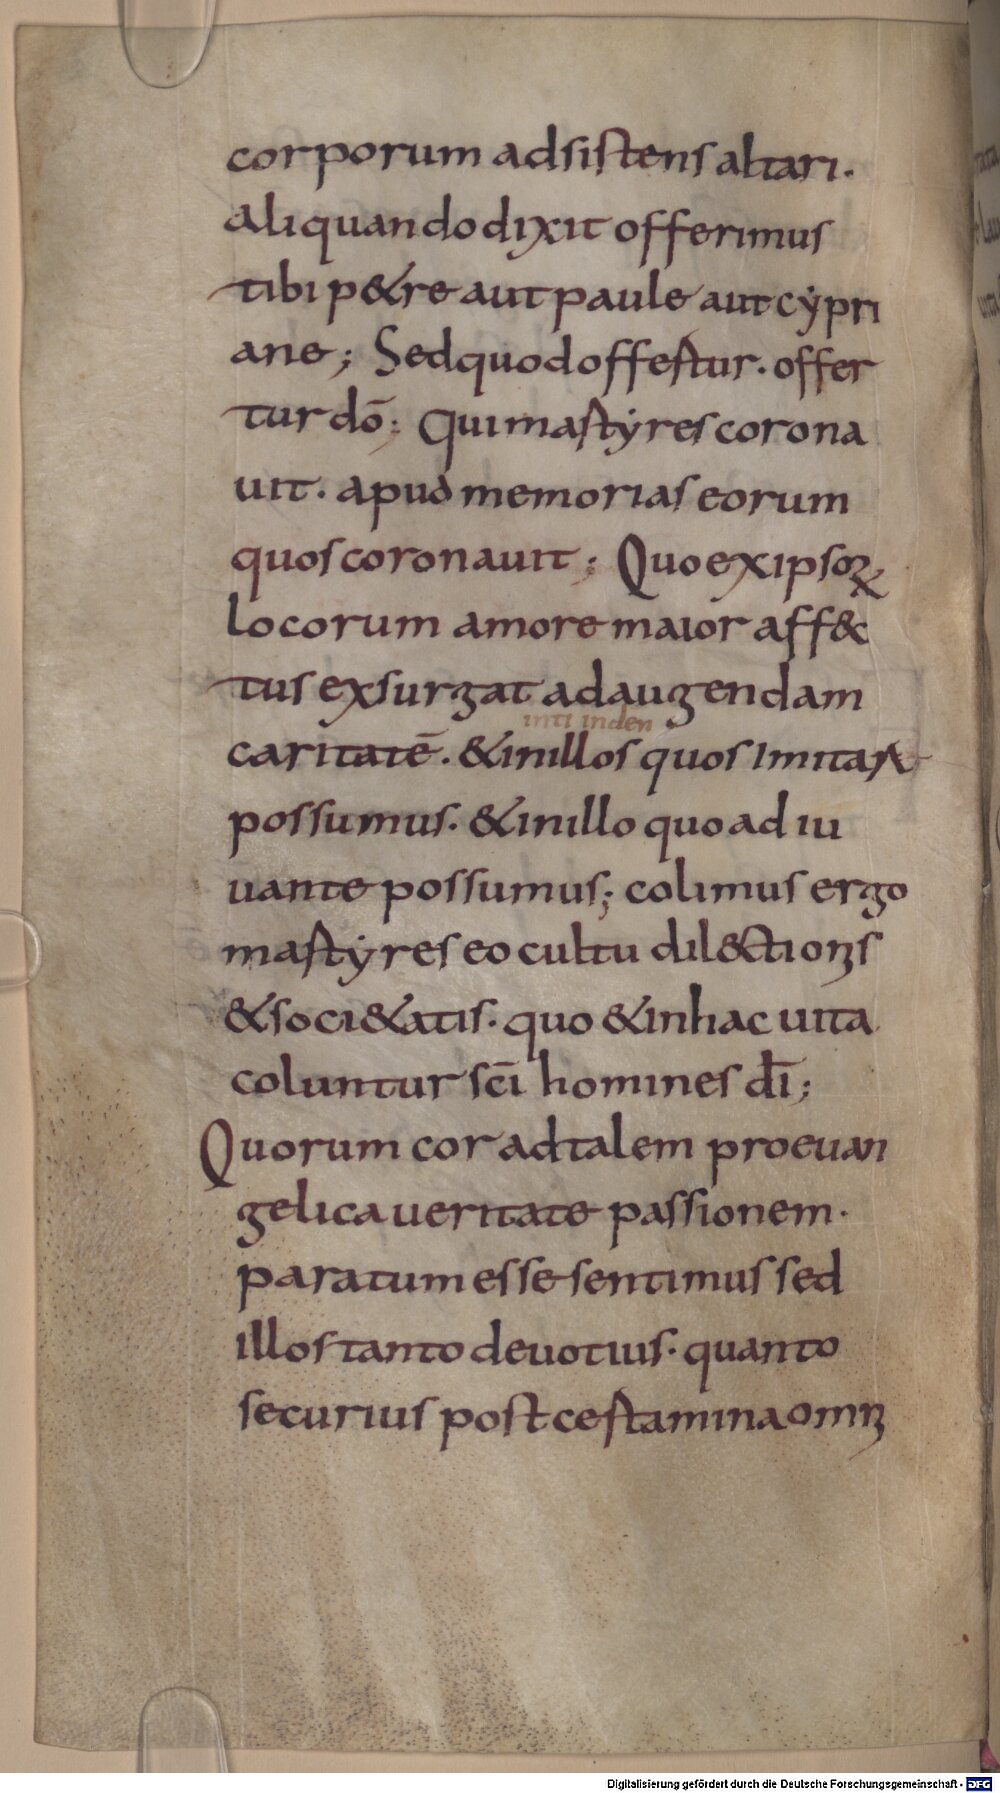 corporum adsistens altari.
aliquando dixit offerimus
tibi p&re aut paule aut cẏpri
ane; Sed quod offertur. offer
tur dō; Qui martẏres corona
uit. apud memorias eorum
quos coronauit; Quo ex ipsoꝝ
locorum amore maior aff&c
tus exsurgat ad augendam
inti inden
caritatē. & in illos quos Imitari
possumus. & in illo quo ad iu
uante possumus; colimus ergo
martẏres eo cultu dil&ctionis
& soci&atis. quo & in hac uita
coluntur sc̄i homines dī;
Quorum cor ad talem pro euan
gelica ueritate passionem.
paratum esse sentimus sed
illos tanto deuotius. quanto
securius post certamina omni
Digitalisierung gefördert durch die Deutsche Forschungsgemeinschaft - DFG